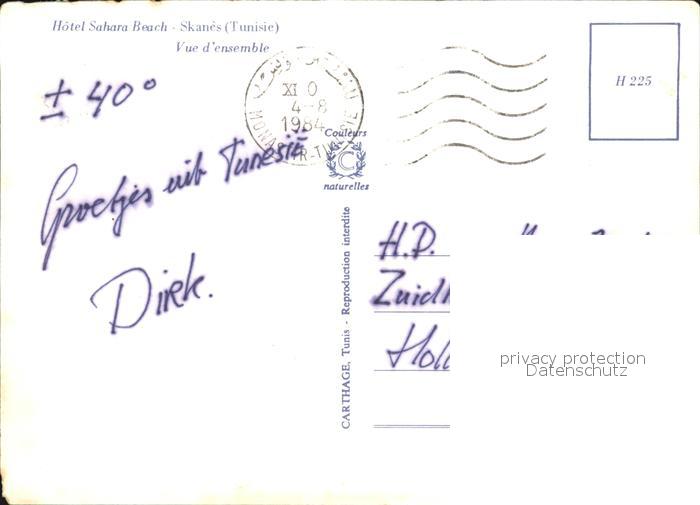 Hôtel Sahara Beach - Skanès (Tunisie)
Vue d'ensemble
H 225
± 40°
XI 0
4-8
1984
Couleurs
C
naturelles
Groetjes uit Tunesië
Dirk.
CARTHAGE, Tunis - Reproduction interdite
H.P.
privacy protection
Datenschutz